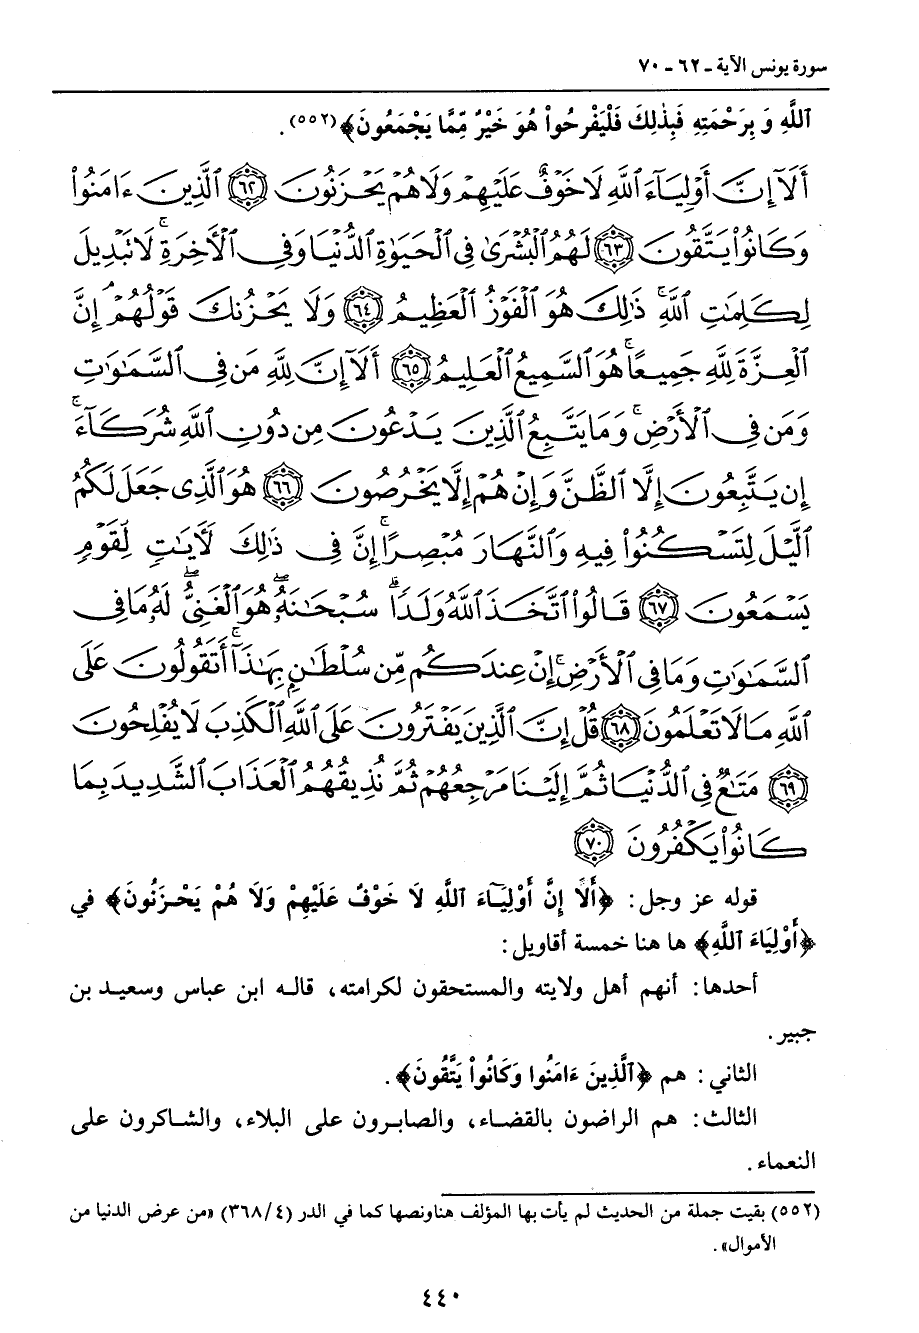 سورة يونس الآية ـ ٦٢ ـ ٧٠
ٱللَّهِ وَ بِرَحْمَتِهِ فَبِذَٰلِكَ فَلْيَفْرَحُواْ هُوَ خَيْرٌ مِّمَّا يَجْمَعُونَ﴾(٥٥٢).
أَلَآ إِنَّ أَوْلِيَآءَ ٱللَّهِ لَا خَوْفٌ عَلَيْهِمْ وَلَا هُمْ يَحْزَنُونَ ﴿٦٢﴾ ٱلَّذِينَ ءَامَنُواْ
وَكَانُواْ يَتَّقُونَ ﴿٦٣﴾ لَهُمُ ٱلْبُشْرَىٰ فِي ٱلْحَيَوٰةِ ٱلدُّنْيَا وَفِي ٱلْأَخِرَةِ ۚ لَا تَبْدِيلَ
لِكَلِمَٰتِ ٱللَّهِ ۚ ذَٰلِكَ هُوَ ٱلْفَوْزُ ٱلْعَظِيمُ ﴿٦٤﴾ وَلَا يَحْزُنكَ قَوْلُهُمْ ۘ إِنَّ
ٱلْعِزَّةَ لِلَّهِ جَمِيعًا ۚ هُوَ ٱلسَّمِيعُ ٱلْعَلِيمُ ﴿٦٥﴾ أَلَآ إِنَّ لِلَّهِ مَن فِي ٱلسَّمَٰوَٰتِ
وَمَن فِي ٱلْأَرْضِ ۗ وَمَا يَتَّبِعُ ٱلَّذِينَ يَدْعُونَ مِن دُونِ ٱللَّهِ شُرَكَآءَ ۚ
إِن يَتَّبِعُونَ إِلَّا ٱلظَّنَّ وَإِنْ هُمْ إِلَّا يَخْرُصُونَ ﴿٦٦﴾ هُوَ ٱلَّذِي جَعَلَ لَكُمُ
ٱلَّيْلَ لِتَسْكُنُواْ فِيهِ وَٱلنَّهَارَ مُبْصِرًا ۚ إِنَّ فِي ذَٰلِكَ لَأَيَٰتٍ لِّقَوْمٍ
يَسْمَعُونَ ﴿٦٧﴾ قَالُواْ ٱتَّخَذَ ٱللَّهُ وَلَدًا ۗ سُبْحَٰنَهُۥ ۖ هُوَ ٱلْغَنِيُّ ۖ لَهُۥ مَا فِي
ٱلسَّمَٰوَٰتِ وَمَا فِي ٱلْأَرْضِ ۚ إِنْ عِندَكُم مِّن سُلْطَٰنٍۭ بِهَٰذَآ ۚ أَتَقُولُونَ عَلَى
ٱللَّهِ مَا لَا تَعْلَمُونَ ﴿٦٨﴾ قُلْ إِنَّ ٱلَّذِينَ يَفْتَرُونَ عَلَى ٱللَّهِ ٱلْكَذِبَ لَا يُفْلِحُونَ
﴿٦٩﴾ مَتَٰعٌ فِي ٱلدُّنْيَا ثُمَّ إِلَيْنَا مَرْجِعُهُمْ ثُمَّ نُذِيقُهُمُ ٱلْعَذَابَ ٱلشَّدِيدَ بِمَا
كَانُواْ يَكْفُرُونَ ﴿٧٠﴾
قوله عز وجل: ﴿أَلَآ إِنَّ أَوْلِيَآءَ ٱللَّهِ لَا خَوْفٌ عَلَيْهِمْ وَلَا هُمْ يَحْزَنُونَ﴾ في
﴿أَوْلِيَاءَ ٱللَّهِ﴾ ها هنا خمسة أقاويل:
أحدها: أنهم أهل ولايته والمستحقون لكرامته، قاله ابن عباس وسعيد بن
جبير.
الثاني: هم ﴿ٱلَّذِينَ ءَامَنُوا وَكَانُواْ يَتَّقُونَ﴾.
الثالث: هم الراضون بالقضاء، والصابرون على البلاء، والشاكرون على
النعماء.
(٥٥٢) بقيت جملة من الحديث لم يأت بها المؤلف هناونصها كما في الدر (٣٦٨/٤) «من عرض الدنيا من
الأموال».
٤٤٠